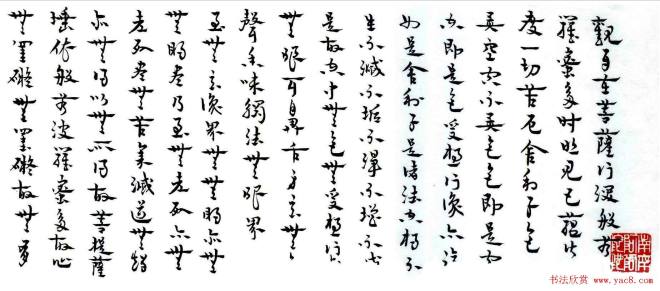 觀自在菩薩行深般若
羅蜜多時照見五蘊皆
度一切苦厄舍利子色
異空空不異色色即是空
空即是色受想行識亦復
如是舍利子是諸法空相不
生不滅不垢不淨不增不減
是故空中無色無受想行識
無眼耳鼻舌身意無色
聲香味觸法無眼界
至無意識界無無明亦無
無明盡乃至無老死亦無
老死盡無苦集滅道無智
亦無得以無所得故菩提薩
埵依般若波羅蜜多故心
無罣礙無罣礙故無有
书法欣赏 www.yac8.com